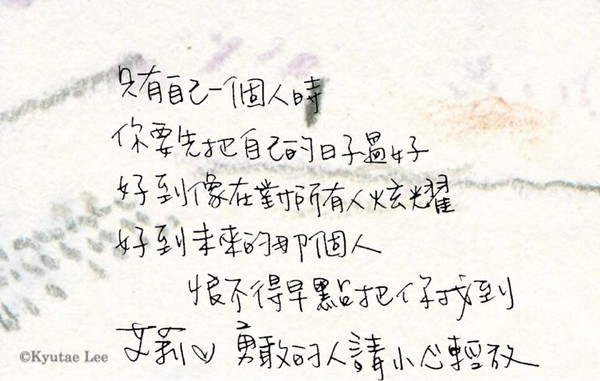 只有自己一個人時
你要先把自己的日子過好
好到像在對所有人炫耀
好到未來的那個人
恨不得早點把你找到
艾莉♡ 勇敢的人請小心輕放
©Kyutae Lee